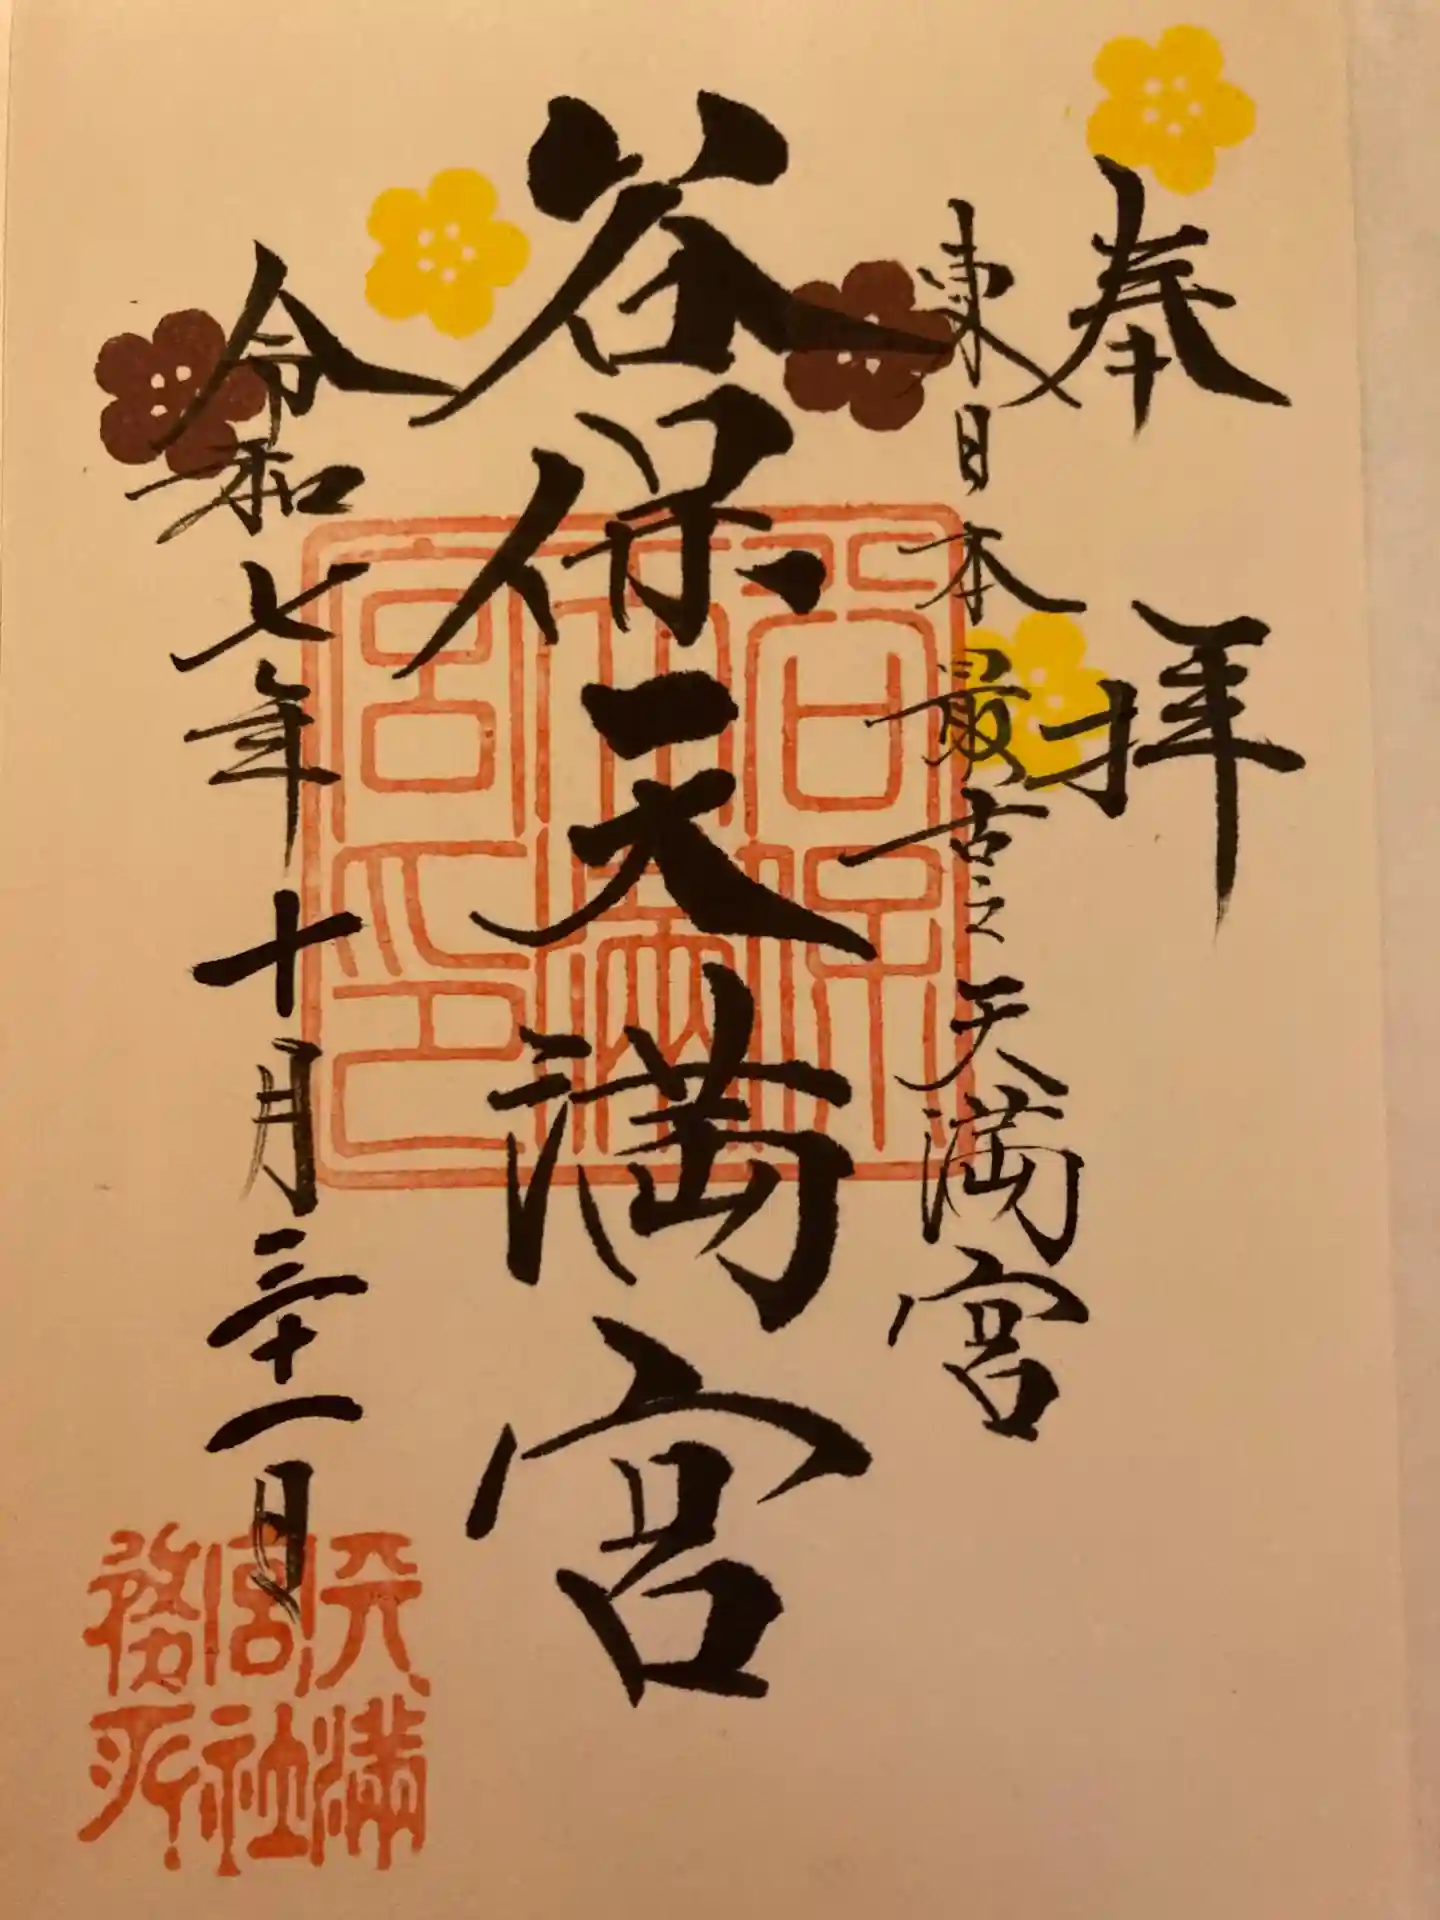 奉拝
東日本最古之天満宮
谷保天満宮
令和七年十月三十一日
谷保天満宮印
天満宮社務所